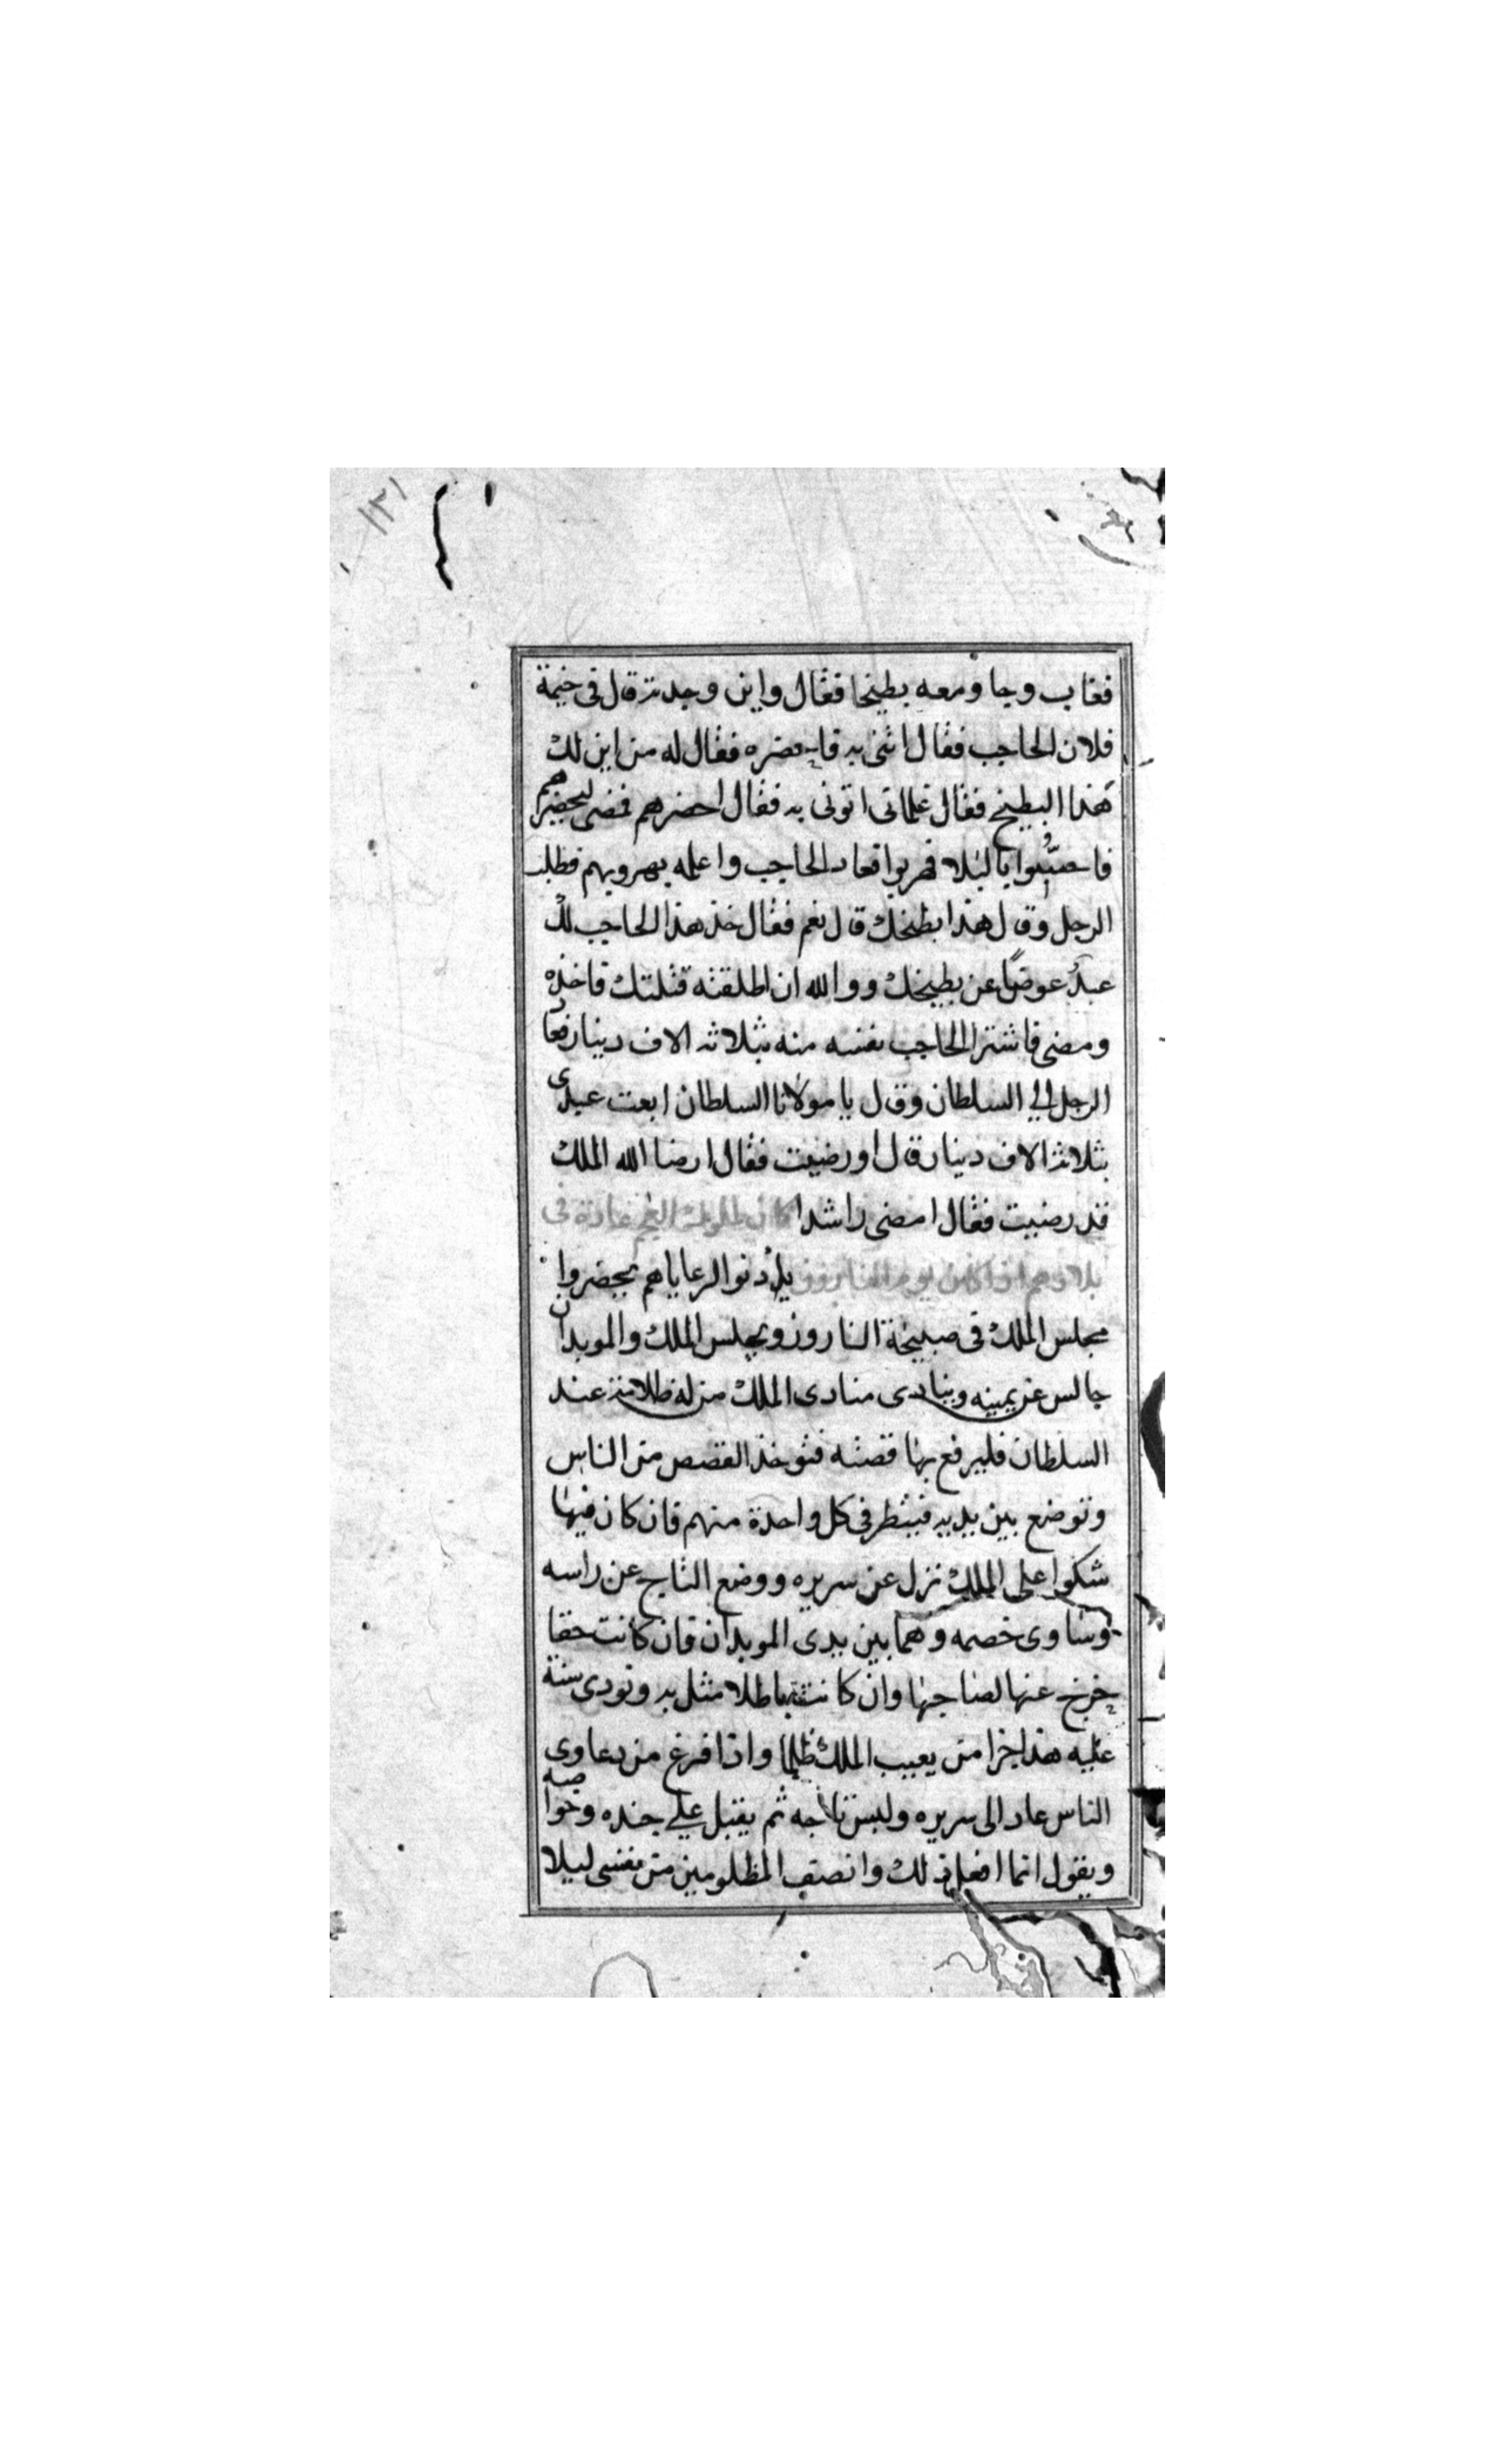 ١٢١
فغاب وجا ومعه بطيخا فقال واين وجدته قال فى خيمة
فلان الحاجب فقال اثنى به فاحضره فقال له من اين لك
هذا البطيخ فقال غلمانى اتونى به فقال احضرهم فمضى ليحضرهم
فهربوا فعاد الحاجب واعلمه بهروبهم فطلب
الرجل وقال هذا بطيخك قال نعم فقال خذ هذا الحاجب لك
عبدً عوضًا عن بطيخك ووالله ان اطلقته قتلتك فاخذه
ومضى فاشترا الحاجب نفسه منه بثلاثه الاف دينار فعاد
الرجل الي السلطان وقال يا مولانا السلطان ابعت عبدى
بثلاثة الاف دينار قال اورضيت فقال ارضا الله الملك
قد رضيت فقال امضى راشدا كان لملوك العجم عادة فى
بلادهم اذا كان يوم الناروز يأذنوا لرعاياهم يحضروا
مجلس الملك فى صبيحة الناروز ويجلس الملك والموبدان
جالس عن يمينه وينادى منادى الملك من له ظلامة عند
السلطان فليرفع بها قصته فتوخذ القصص من الناس
وتوضع بين يديه فينظر فى كل واحدة منهم فان كان فيها
شكوا على الملك نزل عن سريره ووضع التاج عن راسه
وساوى خصمه وهما بين يدى الموبدان فان كانت حقا
خرج عنها لصاحبها وان كانت باطلا مثل به ونودى
عليه هذا جزا من يعيب الملك ظلما واذا فرغ من دعاوى
الناس عاد الى سريره ولبس تاجه ثم يقبل علي جنده وخواصه
ويقول انما افعل ذلك وانصف المظلومين من نفسى ليلا